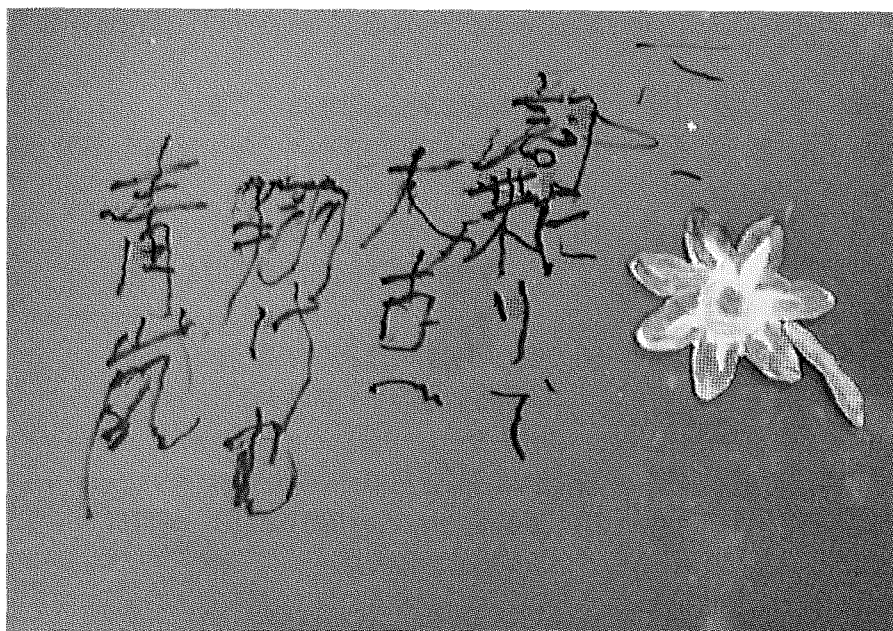 に乗りて
太古へ
翔けむ
青嵐